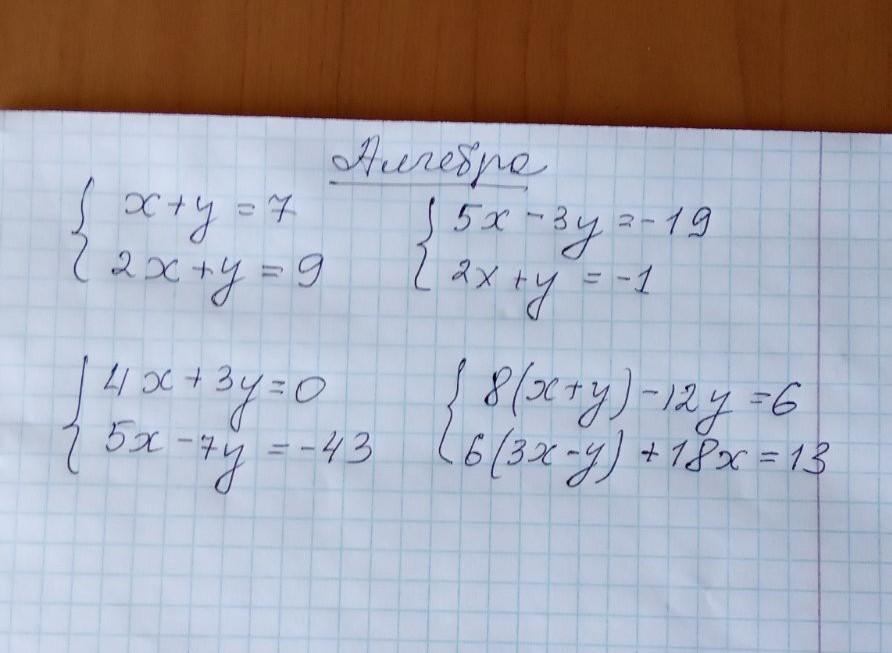 Алгебра
x + y = 7
2x + y = 9
5x - 3y = -19
2x + y = -1
4x + 3y = 0
5x - 7y = -43
8(x+y) - 12y = 6
6(3x-y) + 18x = 13